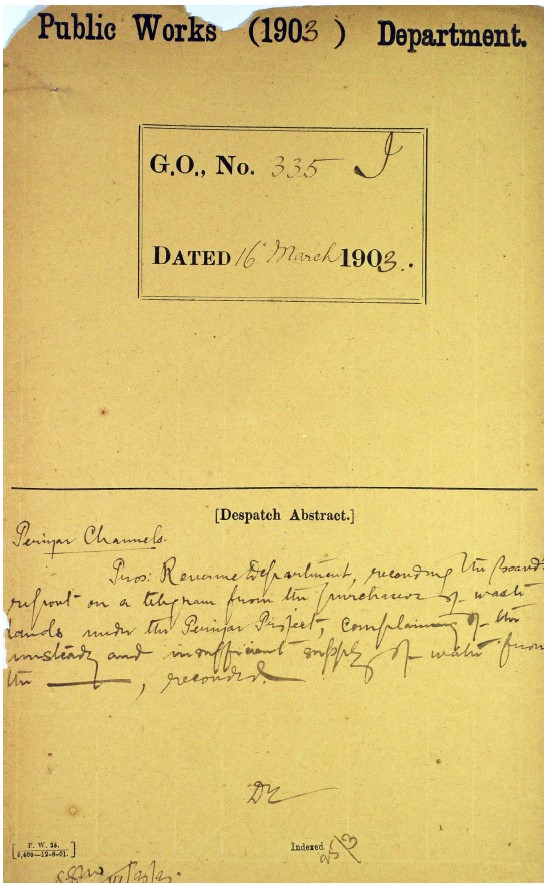 Public Works (1903) Department.
G.O., No. 335 I
DATED 16 March 1903.
[Despatch Abstract.]
Periyar Channels.
Pros: Revenue Department, recording the Board's
report on a telegram from the purchasers of waste
lands under the Periyar Project, complaining of the
unsteady and insufficient supply of water from
the ———, recorded.
P. W. 26.
Indexed 25/3